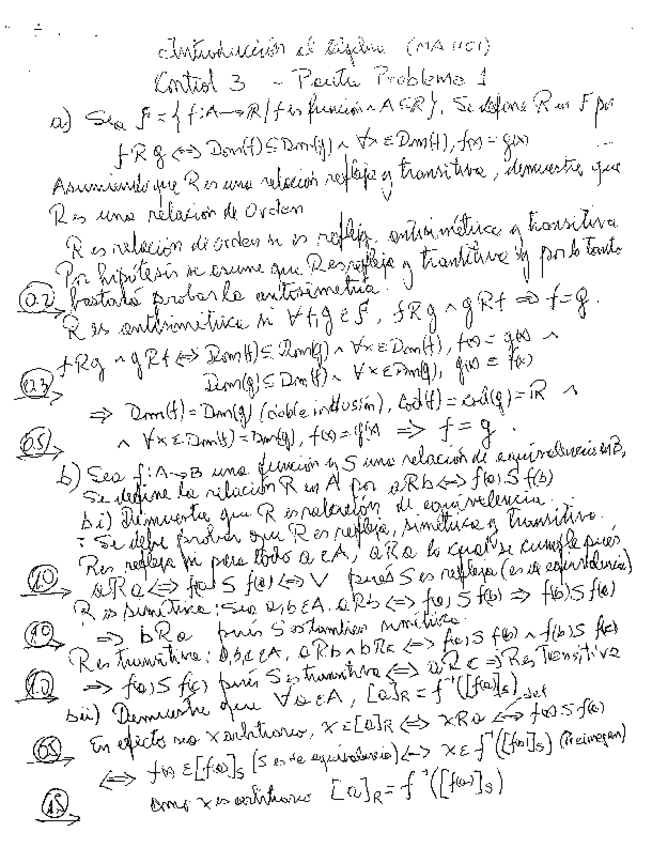 Introducción al Algebra (MA1101)
Control 3 - Pauta Problema 1
a) Sea F = { f: A → R / f es función ∧ A ⊆ R }. Se define R en F por
f R g ⟺ Dom(f) ⊆ Dom(g) ∧ ∀x ∈ Dom(f), f(x) = g(x)
Asumiendo que R es una relación refleja y transitiva, demuestre que
R es una relación de Orden
R es relación de orden si es refleja, antisimétrica y transitiva
Por hipótesis se asume que R es refleja y transitiva y por lo tanto
0.2 bastará probar la antisimetría.
R es antisimétrica si ∀f, g ∈ F, f R g ∧ g R f ⟹ f = g.
f R g ∧ g R f ⟺ Dom(f) ⊆ Dom(g) ∧ ∀x ∈ Dom(f), f(x) = g(x) ∧
0.3 Dom(g) ⊆ Dom(f) ∧ ∀x ∈ Dom(g), g(x) = f(x)
⟹ Dom(f) = Dom(g) (doble inclusión), Cod(f) = Cod(g) = R ∧
0.5 ∧ ∀x ∈ Dom(f) = Dom(g), f(x) = g(x) ⟹ f = g.
b) Sea f: A → B una función y S una relación de equivalencia en B,
Se define la relación R en A por a R b ⟺ f(a) S f(b)
bi) Demuestre que R es relación de equivalencia.
: Se debe probar que R es refleja, simétrica y transitiva.
R es refleja si para todo a ∈ A, a R a lo cual se cumple pues
1.0 a R a ⟺ f(a) S f(a) ⟺ V pues S es refleja (es de equivalencia)
R es simétrica: Sea a, b ∈ A. a R b ⟺ f(a) S f(b) ⟹ f(b) S f(a)
1.0 ⟹ b R a pues S es también simétrica.
R es transitiva: a, b, c ∈ A, a R b ∧ b R c ⟺ f(a) S f(b) ∧ f(b) S f(c)
1.0 ⟹ f(a) S f(c) pues S es transitiva ⟺ a R c ⟹ R es Transitiva
bii) Demuestre que ∀a ∈ A, [a]R = f⁻¹([f(a)]S)
En efecto sea x arbitrario, x ∈ [a]R ⟺ x R a ⟺ def f(x) S f(a)
0.5 ⟺ f(x) ∈ [f(a)]S (S es de equivalencia) ⟺ x ∈ f⁻¹([f(a)]S) (Preimagen)
1.5 como x es arbitrario [a]R = f⁻¹([f(a)]S)